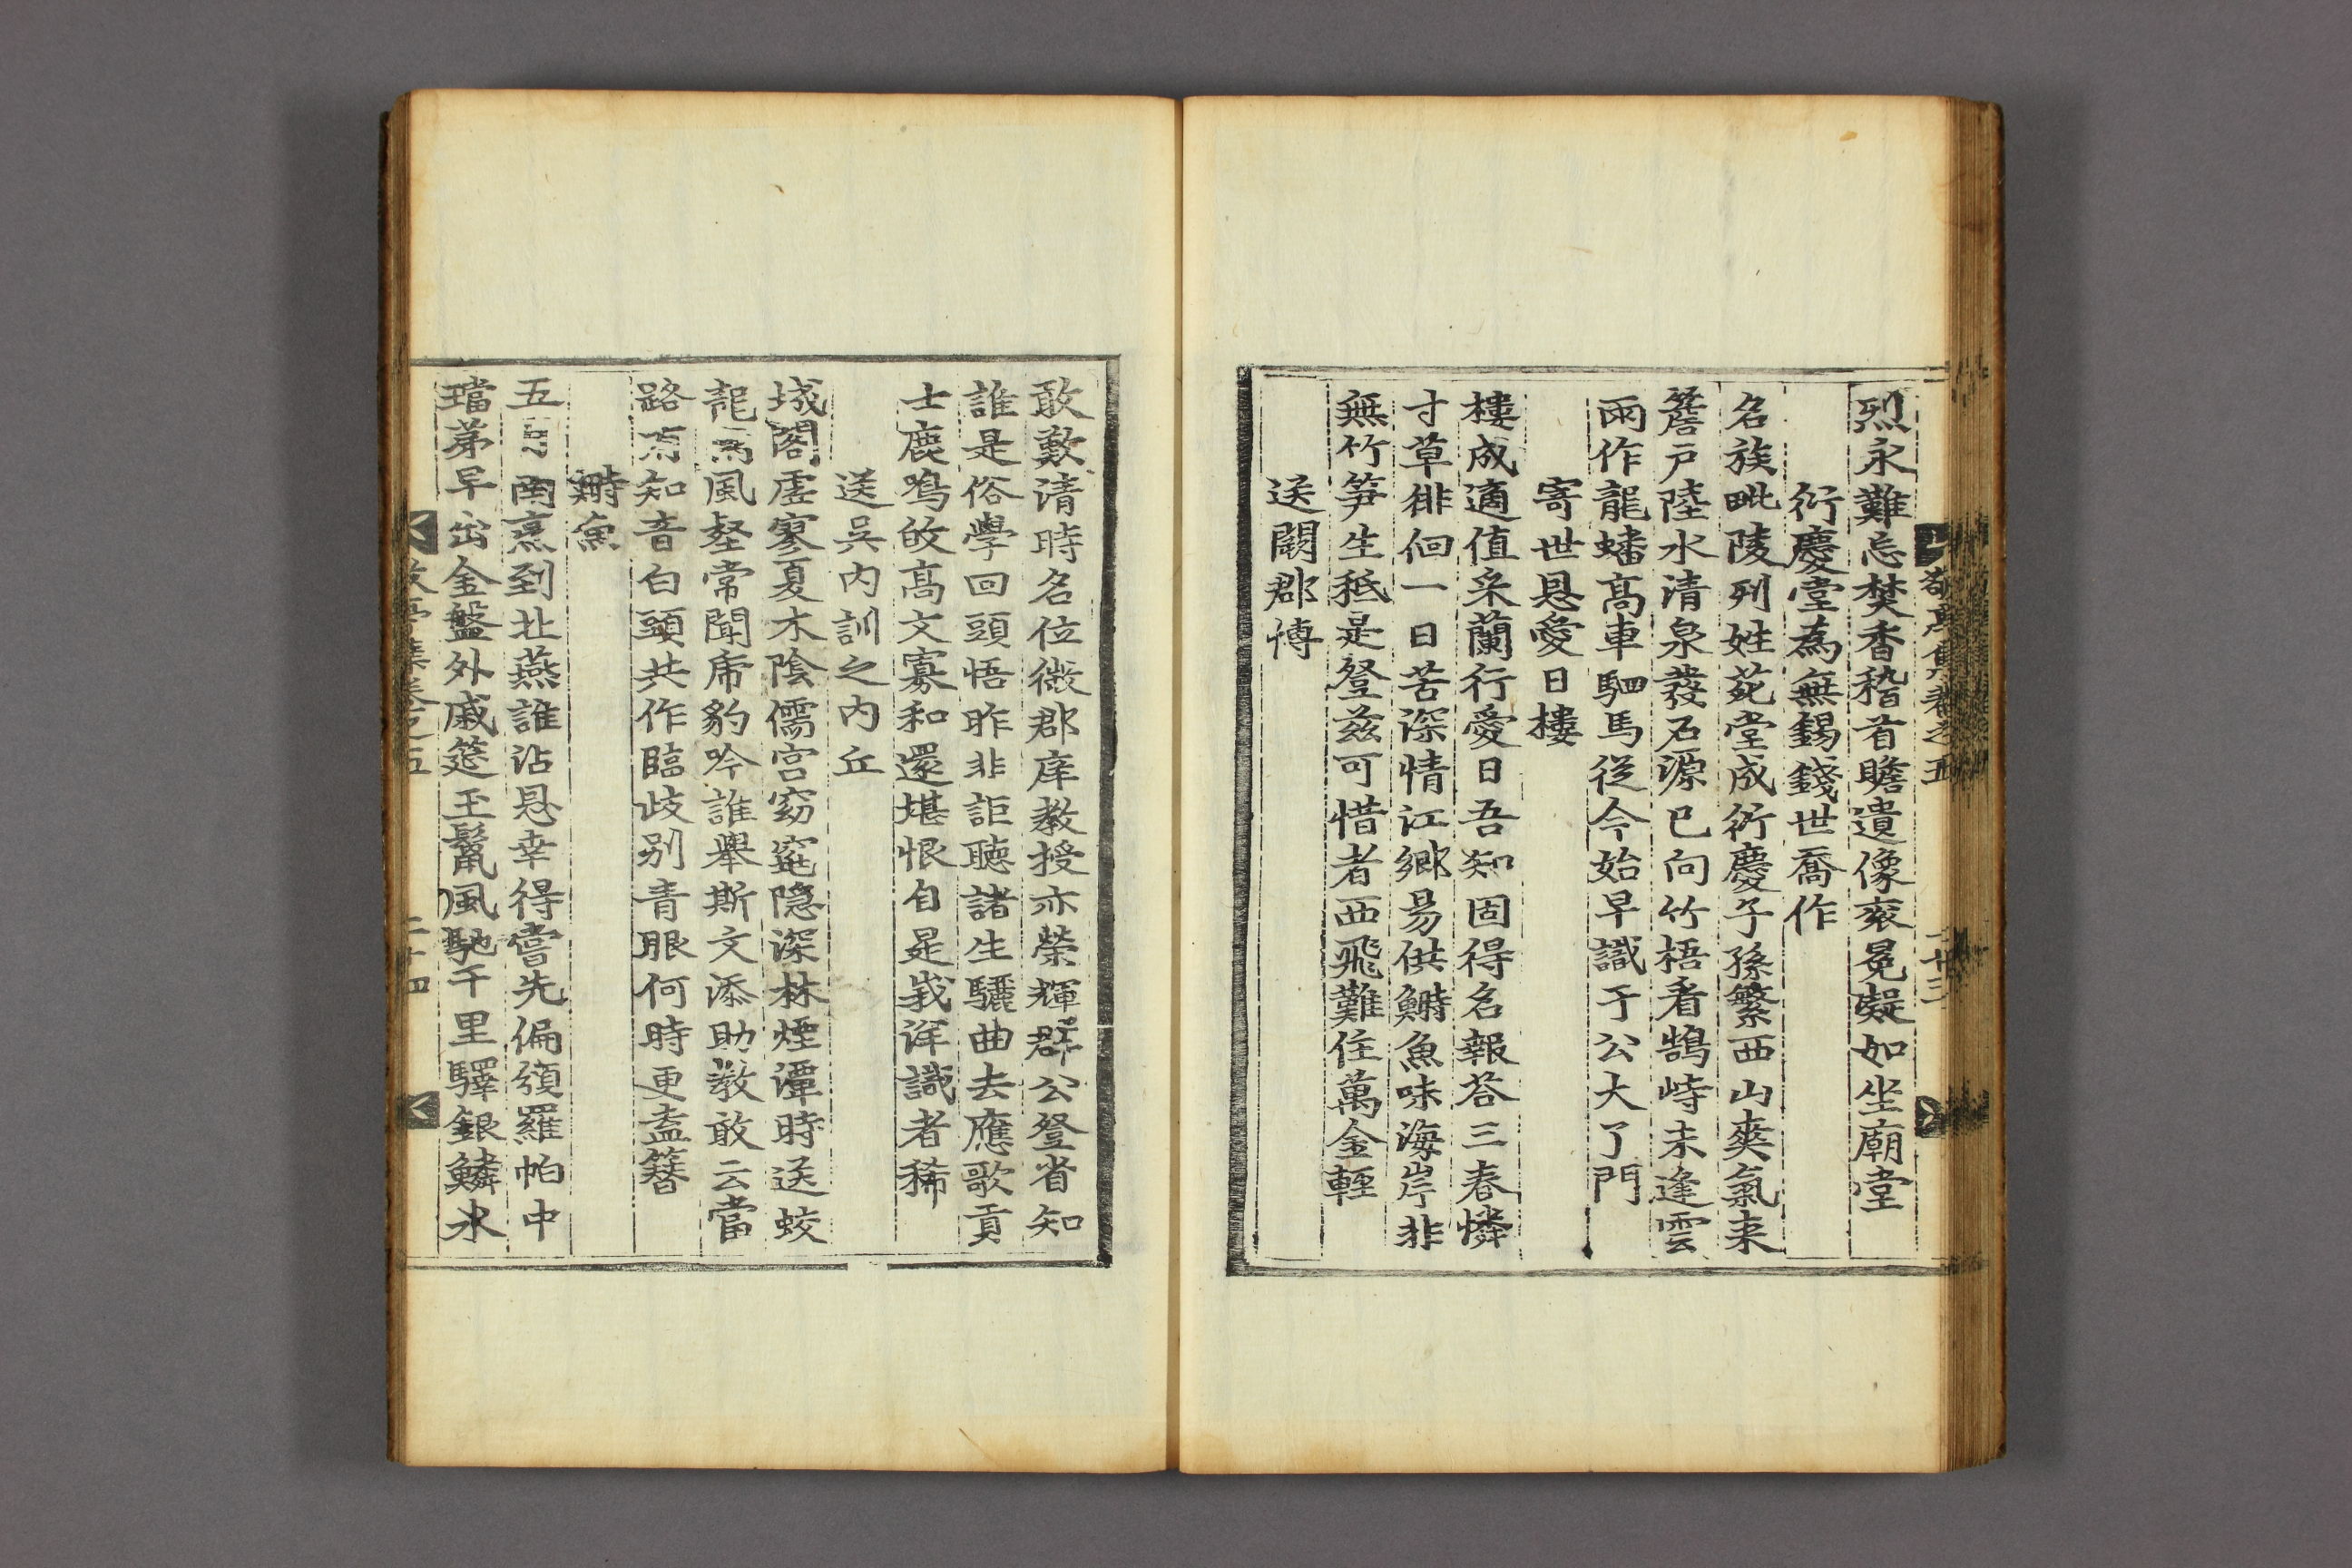 烈永難忘焚香稽首瞻遺像衮冕凝如坐廟堂
衍慶堂為無錫錢世喬作
名族毗陵列姓茺堂成衍慶子孫繁西山爽氣来
簷户陸水清泉發石源已向竹梧看鵠峙未逢雲
雨作龍蟠髙車駟馬從今始早識于公大了門
寄世恩愛日樓
樓成適值采蘭行愛日吾知固得名報荅三春憐
寸草徘徊一日苦深情江鄉易供鰣魚味海岸非
無竹笋生秪是登兹可惜者西飛難住萬金輕
送闕郡博
敢歎清時名位微郡庠教授亦榮輝群公登省知
誰是俗學回頭悟昨非詎聽諸生驪曲去應歌貢
士鹿鳴故髙文寡和還堪恨自是峩洋識者稀
送吴内訓之内丘
城閣虗寥夏木陰儒宫窈窕隐深林煙潭時送蛟
龍 風壑常聞虎豹吟誰舉斯文添助教敢云當
路 知音白頭共作臨歧别青眼何時更盍簪
鰣魚
五月南烹到北燕誰沾恩幸得嘗先偏須羅帕中
璫茅早出金盤外戚筵玉鬣風馳千里驛銀鱗氷
敬亭集卷之五
二十四